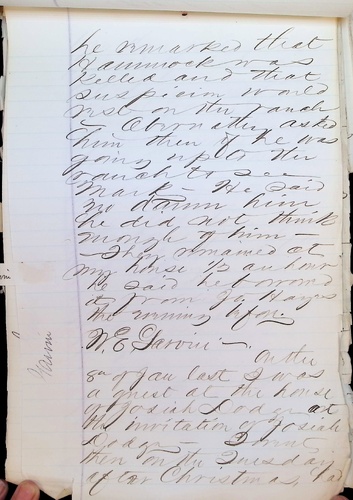 he remarked that
Hammock was
killed and that
suspicion would
rest on the ranch
- Abernathy asked
him then if he was
going up to the
ranch to see
Mark - He said
no damn him
he did not think
enough of him -
- They remained at
my house ½ an hour
he said he borrowed
it from Jo Hayes
the evening before.
W. E. Garvin -
On the
8th of Jan last I was
a guest at the house
of Josiah Dodge at
the invitation of Josiah
Dodge - I went
then on the Tuesday
after Christmas, had
Garvin